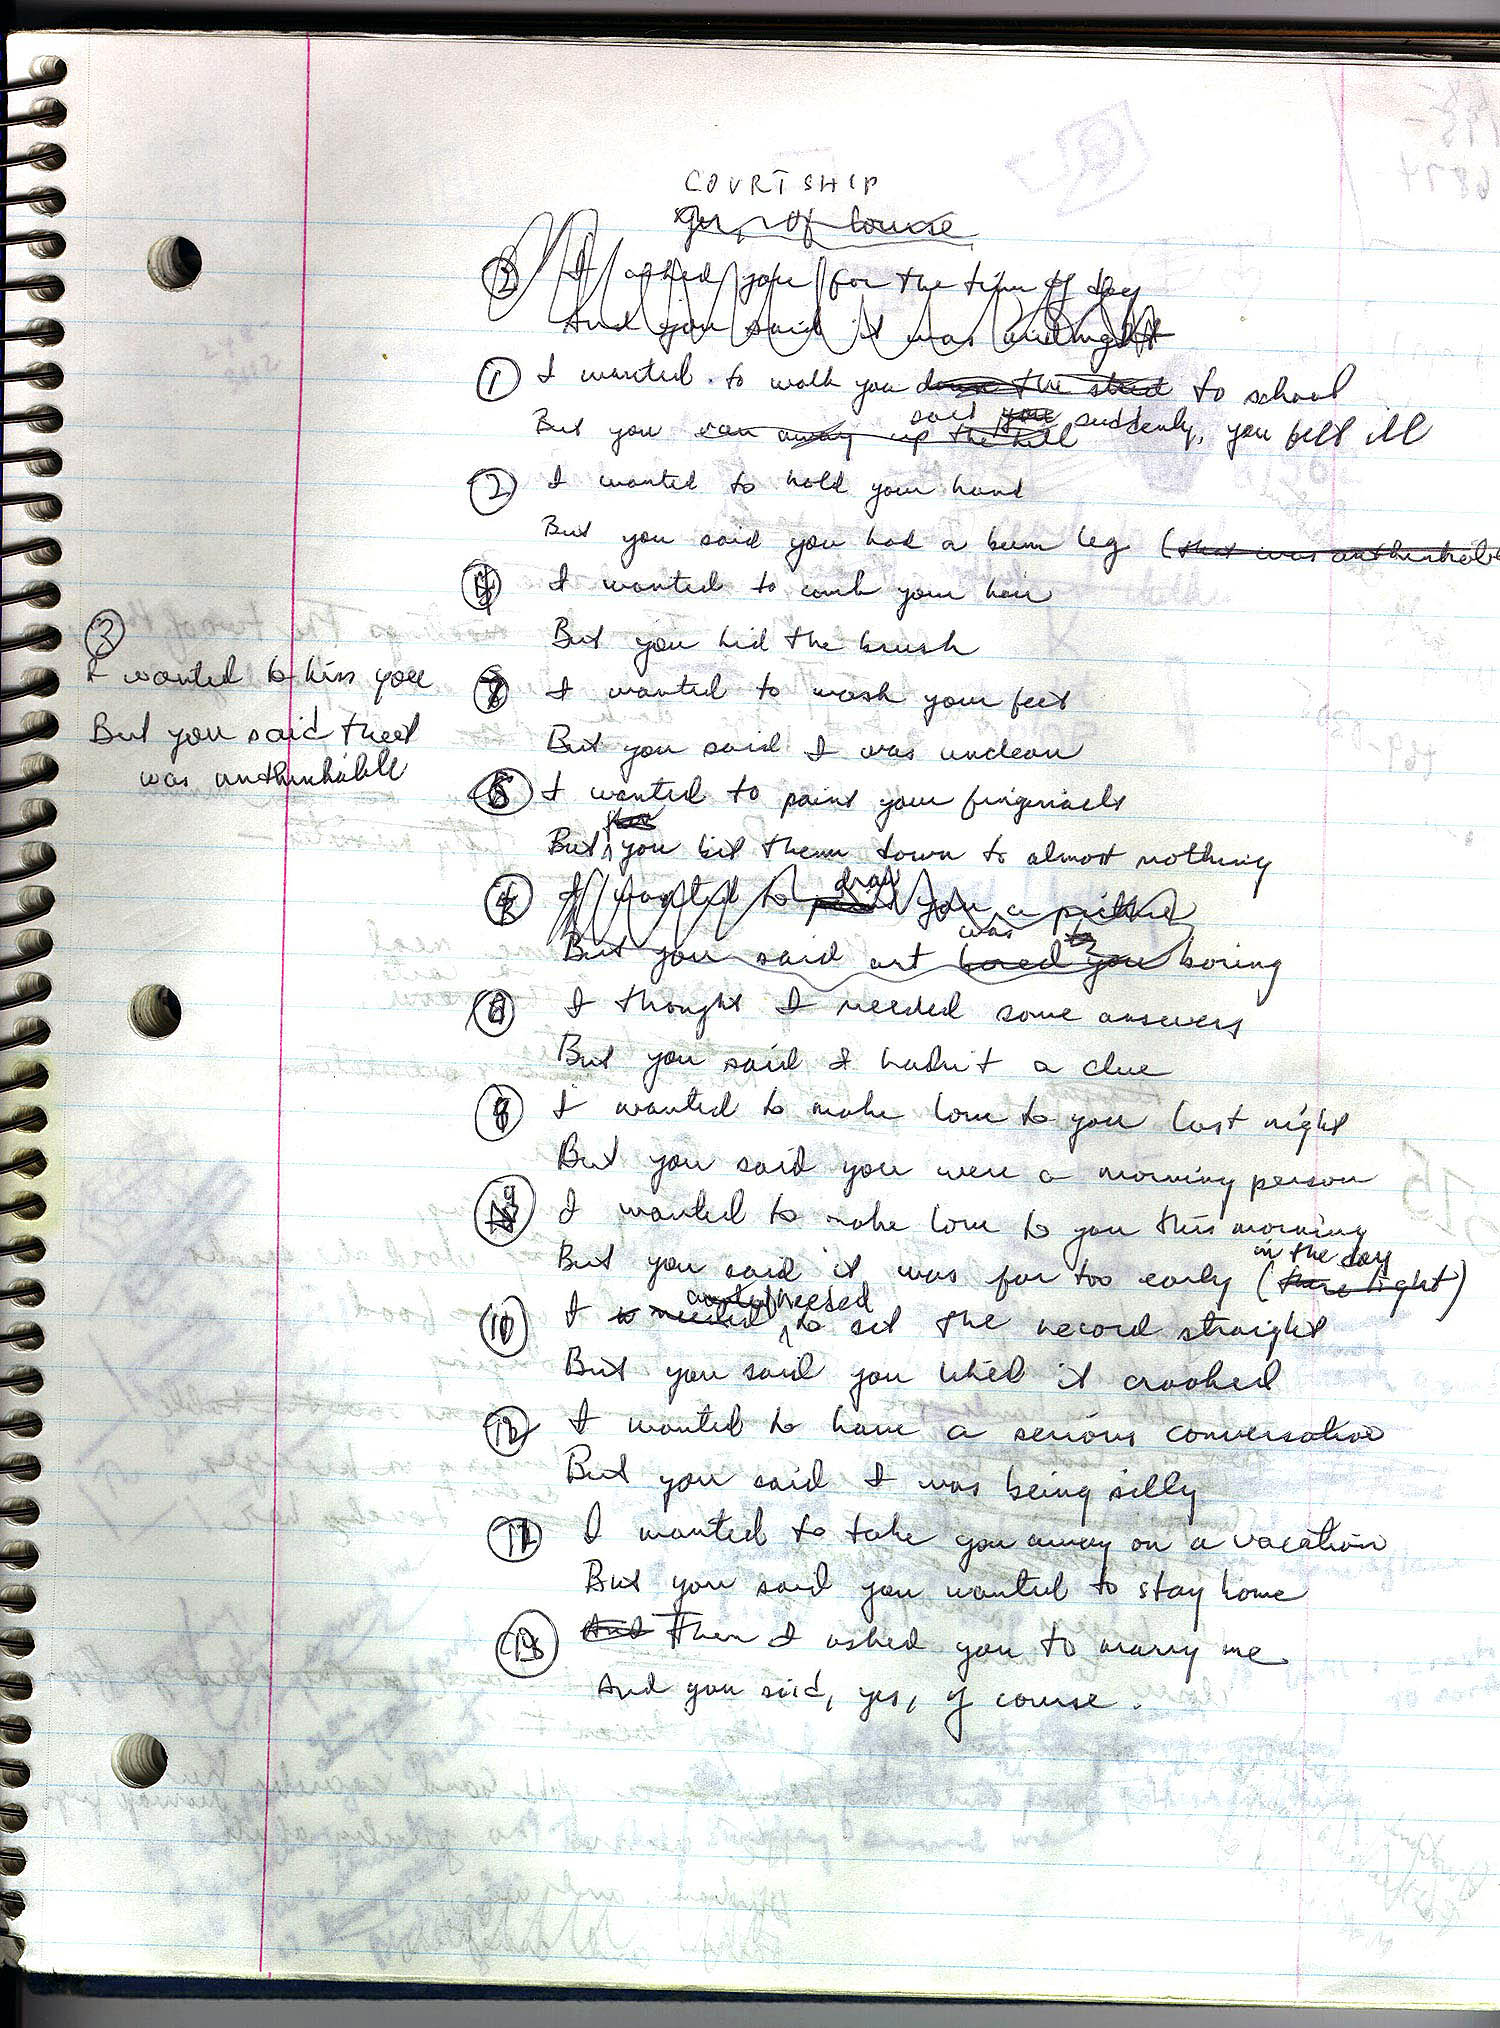 COURTSHIP
Yes, Of Course
I asked you for the time of day
And you said it was midnight
① I wanted to walk you down the street to school
But you ran away up the hill said you suddenly, you felt ill
② I wanted to hold your hand
But you said you had a bum leg (that was unthinkable
④ I wanted to comb your hair
But you hid the brush
③
I wanted to kiss you
But you said that
was unthinkable
I wanted to wash your feet
But you said I was unclean
I wanted to paint your fingernails
But you bit them down to almost nothing
I wanted to draw you a picture
But you said art was bored you boring
I thought I needed some answers
But you said I hadn't a clue
I wanted to make love to you last night
But you said you were a morning person
I wanted to make love to you this morning
But you said it was far too early in the day (light)
⑩ I needed needed to set the record straight
But you said you liked it crooked
I wanted to have a serious conversation
But you said I was being silly
I wanted to take you away on a vacation
But you said you wanted to stay home
And Then I asked you to marry me
And you said, yes, of course.